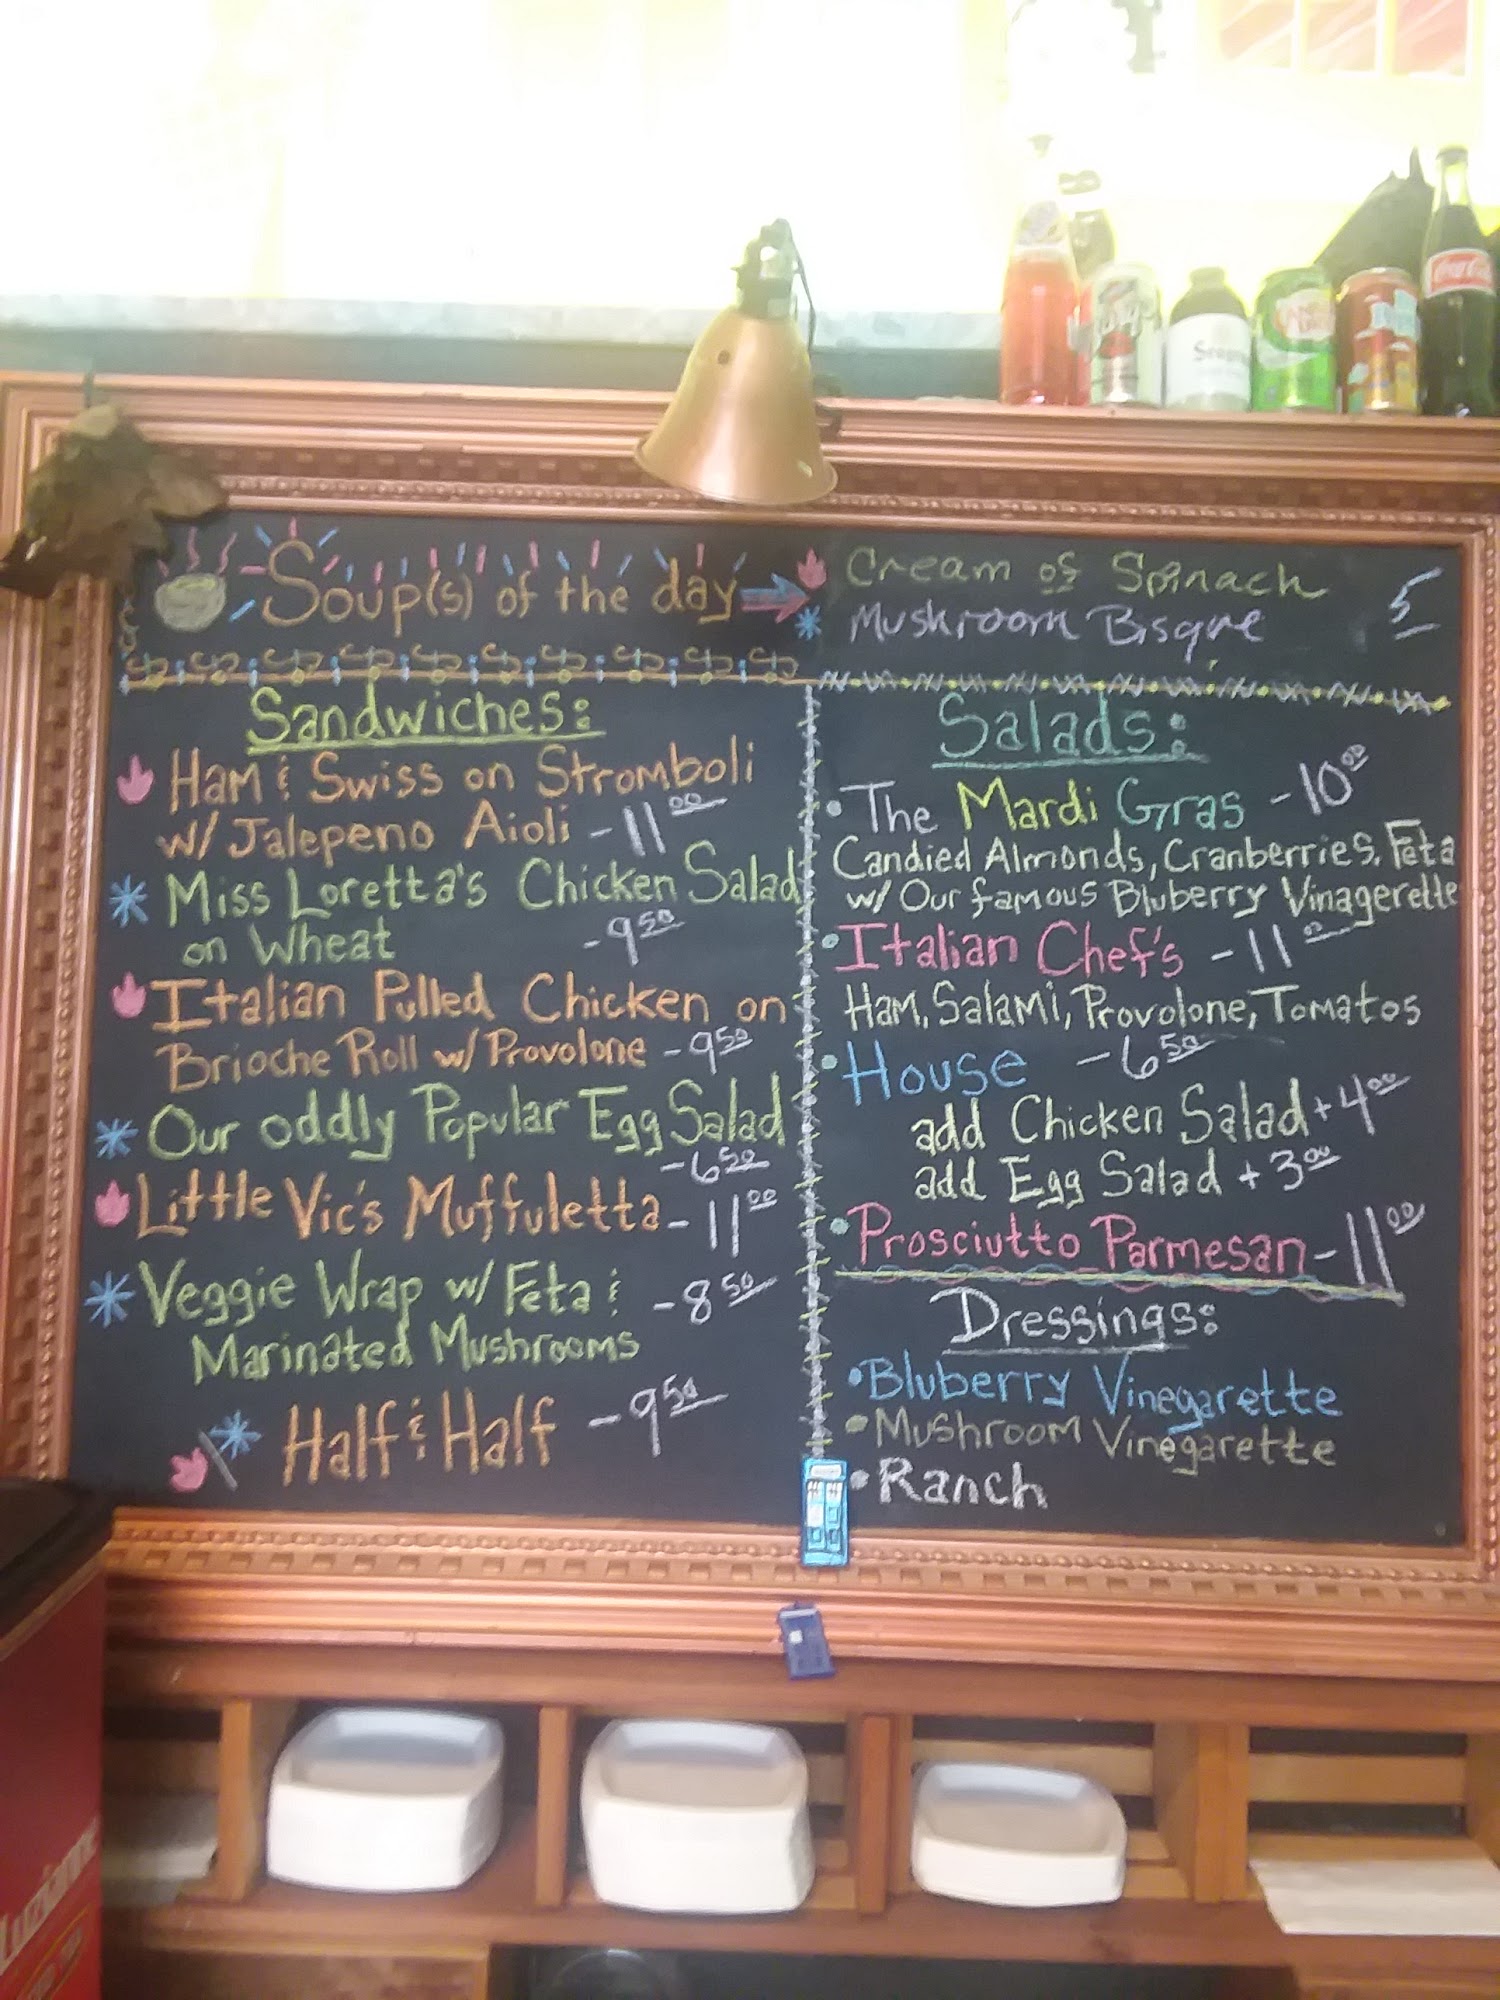 Soup(s) of the day
Cream of Spinach
Mushroom Bisque
5
Sandwiches:
Ham & Swiss on Stromboli
w/ Jalepeno Aioli - 11.00
Miss Loretta's Chicken Salad
on Wheat - 9.50
Italian Pulled Chicken on
Brioche Roll w/ Provolone - 9.50
Our oddly Popular Egg Salad
- 6.50
Little Vic's Muffuletta - 11.00
Veggie Wrap w/ Feta & - 8.50
Marinated Mushrooms
Half & Half - 9.50
Salads:
• The Mardi Gras - 10.00
Candied Almonds, Cranberries, Feta
w/ Our famous Bluberry Vinagerette
• Italian Chef's - 11.00
Ham, Salami, Provolone, Tomatos
• House - 6.50
add Chicken Salad + 4.00
add Egg Salad + 3.00
• Prosciutto Parmesan - 11.00
Dressings:
• Bluberry Vinegarette
• Mushroom Vinegarette
• Ranch
Coca-Cola
Luzianne